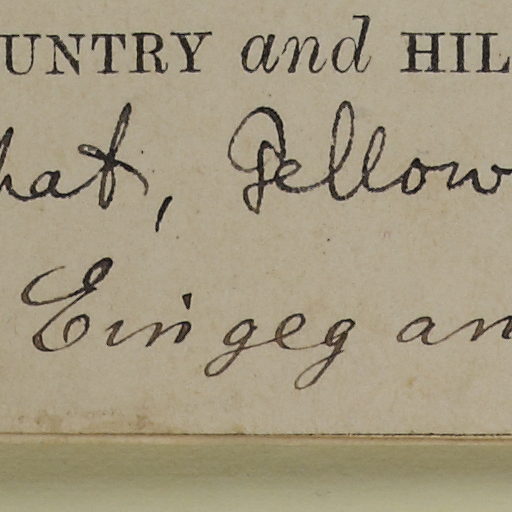 UNTRY and HIL
hat, Pellow
Eingegan